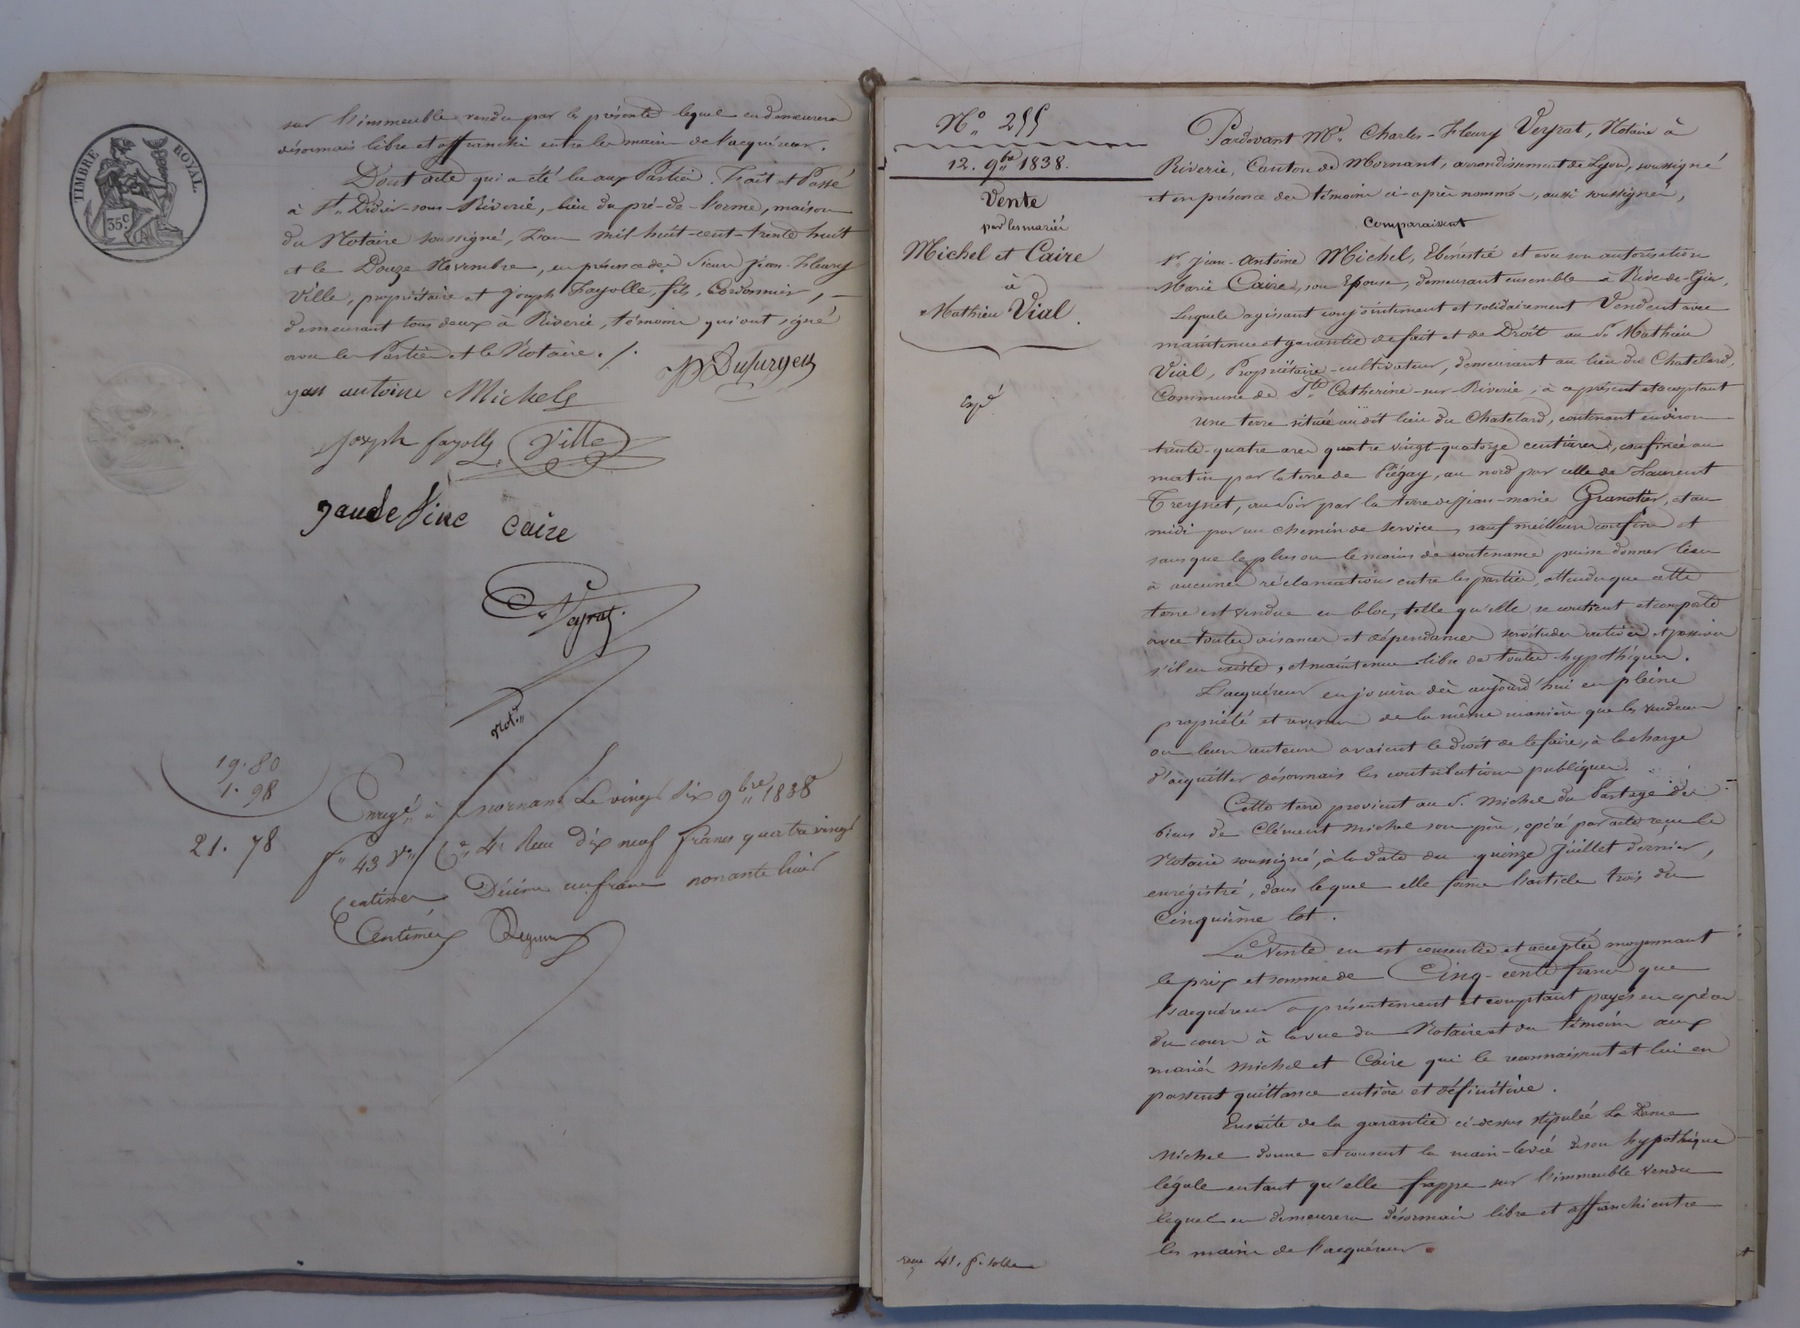 TIMBRE ROYAL
35c
sur l'immeuble vendu par les présentes lequel en demeurera
désormais libre et affranchi entre les mains de l'acquéreur.
Dont acte qui a été lu aux Parties. Fait et Passé
à St. Didier-sous-Riverie, lieu du pré-de-lorme, maison
du Notaire soussigné, L'an mil huit-cent-trente huit
et le Douze Novembre, en présence des Sieurs Jean-Fleury
Ville, propriétaire et Joseph Fayolle, fils, Cordonnier,
demeurant tous deux à Riverie, témoins qui ont signé
avec les Parties et le Notaire. /.
jean antoine Michel
Joseph fayolle Ville
Caire
Veyrat.
Not.re
19. 80
1. 98
21. 78
Enregé à Mornant Le vingt Six 9bre 1838
fo 43 Vo Ce 4. Reçu dix neuf francs quatre vingt
Centimes Décime un franc nonante huit
Centimes
No. 255
12. 9bre 1838.
Vente
par les mariés
Michel et Caire
à
Mathieu Vial.
expé
Pardevant Me. Charles-Fleury Veyrat, Notaire à
Riverie, Canton de Mornant, arrondissement de Lyon, soussigné
et en présence des témoins ci-après nommés, aussi soussignés,
Comparaissent
Sr. Jean-Antoine Michel, Ebéniste et avec son autorisation
Marie Caire, son Epouse, demeurant ensemble à Rive-de-Gier,
Lesquels agissant conjointement et solidairement Vendent avec
maintenue et garantie de fait et de Droit au Sr. Mathieu
Vial, Propriétaire-cultivateur, demeurant au lieu du Chatelard,
Commune de Ste. Catherine-sur-Riverie, à ce présent et acceptant
une terre située au dit lieu du Chatelard, contenant environ
trente-quatre ares quatre vingt-quatorze centiares, confinée au
matin par la terre de Piégay, au nord par celle de Laurent
Treynet, au Soir par la terre de Jean-marie Granotier, et au
midi par un chemin de service, sauf meilleurs confins et
sans que le plus ou le moins de contenance puisse donner lieu
à aucunes réclamations entre les parties, attendu que cette
terre est vendue en bloc, telle qu'elle se contient et comporte
avec toutes aisances et dépendances servitudes actives et passives
s'il en existe, et maintenue libre de toutes hypothèques.
L'acquéreur en jouira dès aujourd'hui en pleine
propriété et revenu de la même manière que les vendeurs
ou leurs auteurs avaient le droit de le faire, à la charge
d'acquitter désormais les contributions publiques.
Cette terre provient au Sr. Michel du Partage des
biens de Clément Michel son père, opéré par acte reçu le
Notaire soussigné, à la date du quinze Juillet dernier,
enregistré, dans lequel elle forme l'article trois du
Cinquième lot.
La Vente en est consentie et acceptée moyennant
le prix et somme de Cinq-cents francs que
l'acquéreur a présentement et comptant payés en espèces
du cours à la vue du Notaire et des témoins aux
mariés Michel et Caire qui le reconnaissent et lui en
passent quittance entière et définitive.
Ensuite de la garantie ci-dessus stipulée La Dame
Michel donne et consent la main-levée de son hypothèque
légale en tant qu'elle frappe sur l'immeuble vendu
lequel en demeurera désormais libre et affranchi entre
les mains de l'acquéreur.